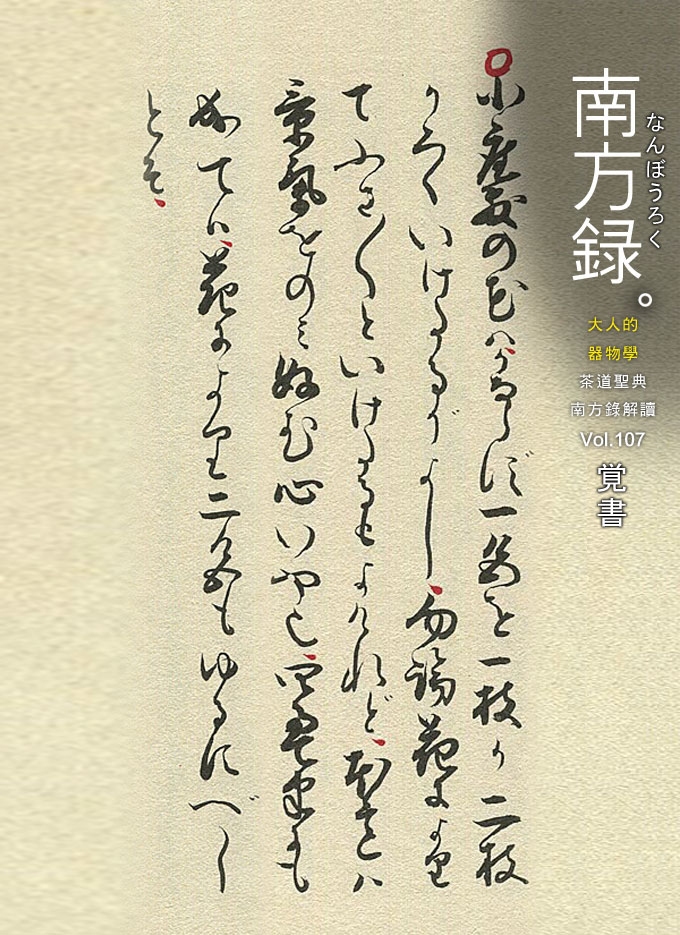 南方録。
なんぼうろく
大人的
器物學
茶道聖典
南方錄解讀
Vol.107
覚書
小座敷の花ハかならず一色を一枝か二枝
かろくいけたるがよし、勿論花により
てふさ〱といけたるもよけれど、本意ハ
景氣をのミ好む心いや也、四畳半にも
成てハ、花により二色もゆるすべし
とそ、